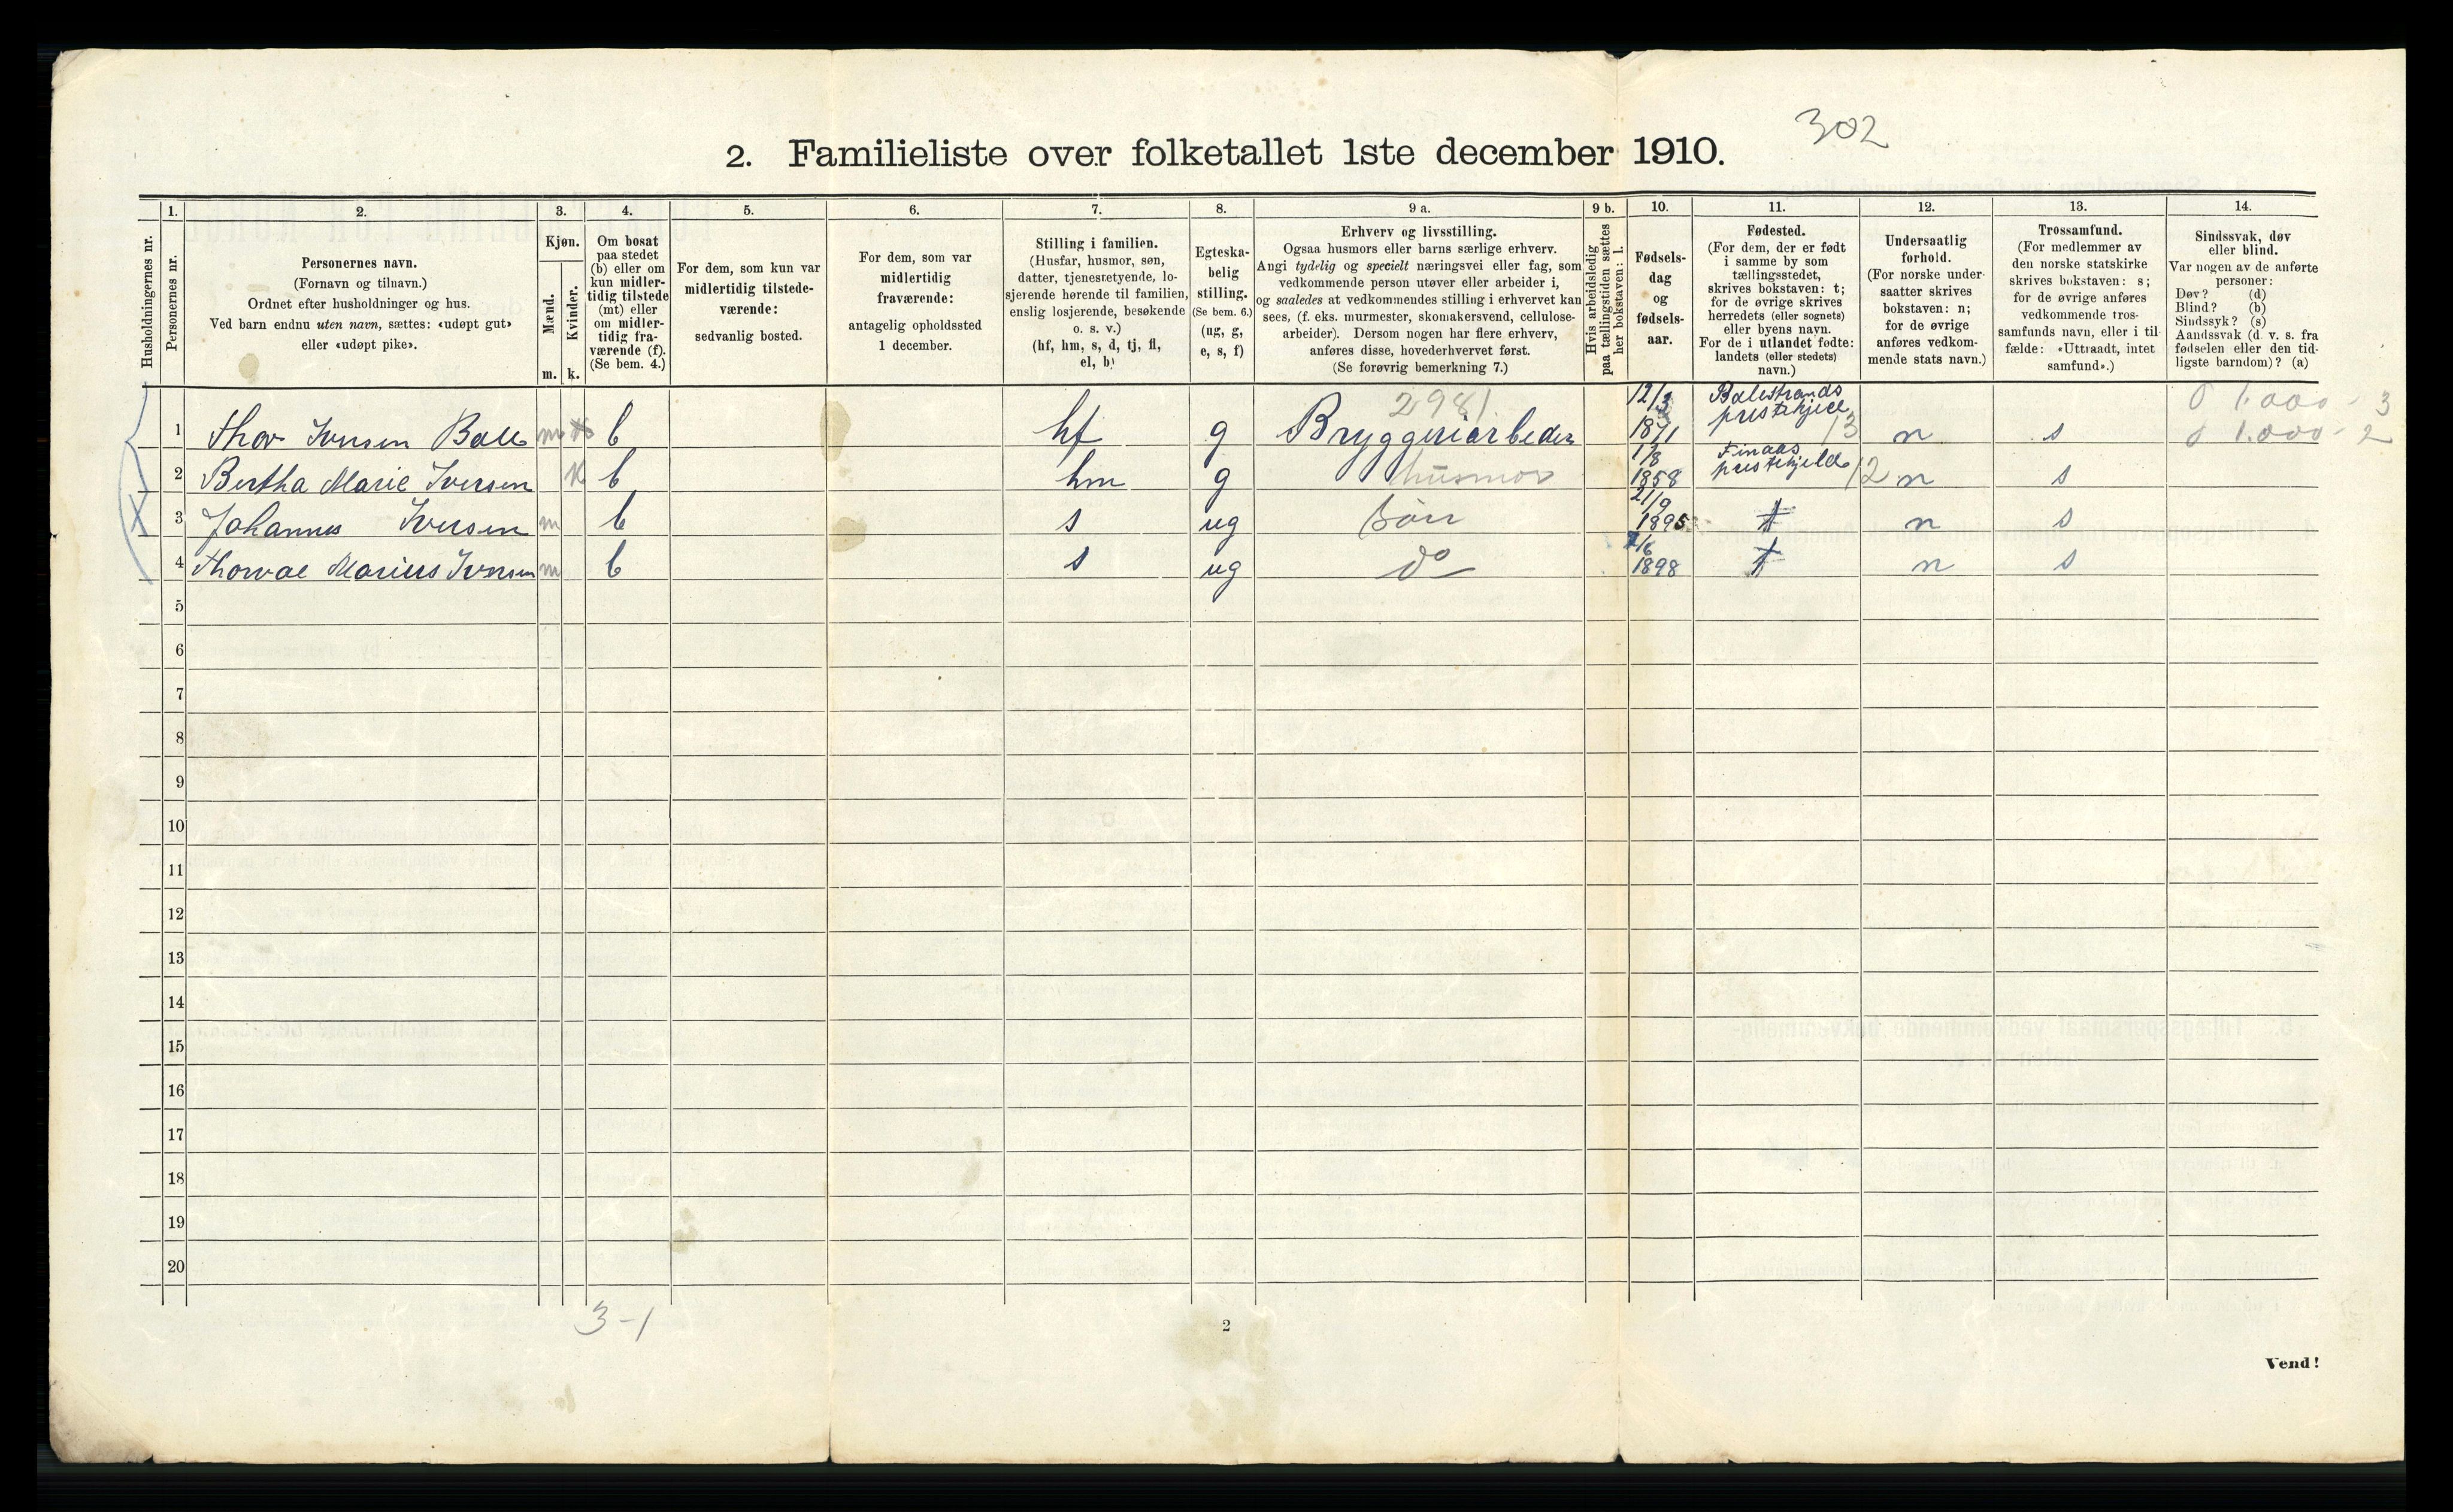 302
2. Familieliste over folketallet 1ste december 1910.
1. 2. 3. 4. 5. 6. 7. 8. 9 a. 9 b. 10. 11. 12. 13. 14.
Husholdningernes nr.
Personernes nr.
Personernes navn.
(Fornavn og tilnavn.)
Ordnet efter husholdninger og hus.
Ved barn endnu uten navn, sættes: «udøpt gut»
eller «udøpt pike».
Kjøn.
Mænd.
m.
Kvinder.
k.
Om bosat
paa stedet
(b) eller om
kun midler-
tidig tilstede
(mt) eller
om midler-
tidig fra-
værende (f).
(Se bem. 4.)
For dem, som kun var
midlertidig tilstede-
værende:
sedvanlig bosted.
For dem, som var
midlertidig
fraværende:
antagelig opholdssted
1 december.
Stilling i familien.
(Husfar, husmor, søn,
datter, tjenestetyende, lo-
sjerende hørende til familien,
enslig losjerende, besøkende
o. s. v.)
(hf, hm, s, d, tj, fl,
el, b)
Egteska-
belig
stilling.
(Se bem. 6.)
(ug, g,
e, s, f)
Erhverv og livsstilling.
Ogsaa husmors eller barns særlige erhverv.
Angi tydelig og specielt næringsvei eller fag, som
vedkommende person utøver eller arbeider i,
og saaledes at vedkommendes stilling i erhvervet kan
sees, (f. eks. murmester, skomakersvend, cellulose-
arbeider). Dersom nogen har flere erhverv,
anføres disse, hovederhvervet først.
(Se forøvrig bemerkning 7.)
Hvis arbeidsledig
paa tællingstiden sættes
her bokstaven: l.
Fødsels-
dag
og
fødsels-
aar.
Fødested.
(For dem, der er født
i samme by som
tællingsstedet,
skrives bokstaven: t;
for de øvrige skrives
herredets (eller sognets)
eller byens navn.
For de i utlandet fødte:
landets (eller stedets)
navn.)
Undersaatlig
forhold.
(For norske under-
saatter skrives
bokstaven: n;
for de øvrige
anføres vedkom-
mende stats navn.)
Trossamfund.
(For medlemmer av
den norske statskirke
skrives bokstaven: s;
for de øvrige anføres
vedkommende tros-
samfunds navn, eller i til-
fælde: «Uttraadt, intet
samfund».)
Sindssvak, døv
eller blind.
Var nogen av de anførte
personer:
Døv? (d)
Blind? (b)
Sindssyk? (s)
Aandssvak (d. v. s. fra
fødselen eller den tid-
ligste barndom)? (a)
2981 12/3 Balestrands 1.000 - 3
1 Thor Iversen Balle m b hf g Bryggeriarbeder 1871 prestehjeld 13 n s 1.000 - 2
1/8 Finaas
2 Bertha Marie Iversen k b hm g husmor 1858 prestehjeld 12 n s
21/9
3 Johannes Iversen m b s ug søn 1895 t n s
/6
4 Thorval Marius Iversen m b s ug do 1898 t n s
5
6
7
8
9
10
11
12
13
14
15
16
17
18
19
20
3-1
2
Vend!